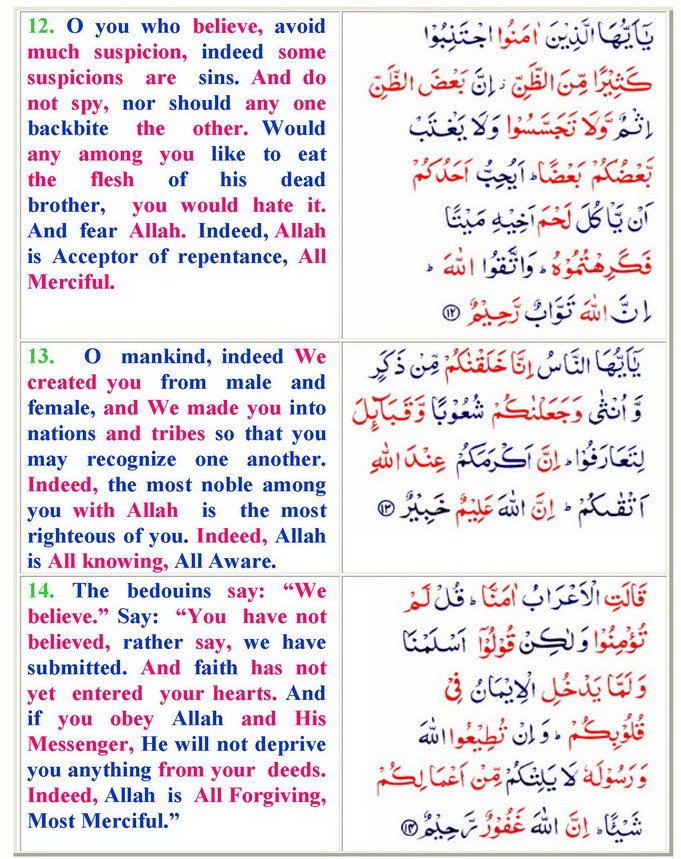 12. O you who believe, avoid
much suspicion, indeed some
suspicions are sins. And do
not spy, nor should any one
backbite the other. Would
any among you like to eat
the flesh of his dead
brother, you would hate it.
And fear Allah. Indeed, Allah
is Acceptor of repentance, All
Merciful.
يٰۤاَيُّهَا الَّذِيْنَ اٰمَنُوا اجْتَنِبُوْا
كَثِيْرًا مِّنَ الظَّنِّ ز اِنَّ بَعْضَ الظَّنِّ
اِثْمٌ وَّلَا تَجَسَّسُوْا وَلَا يَغْتَبْ
بَّعْضُكُمْ بَعْضًا ؕ اَيُحِبُّ اَحَدُكُمْ
اَنْ يَّاْكُلَ لَحْمَ اَخِيْهِ مَيْتًا
فَكَرِهْتُمُوْهُ ؕ وَاتَّقُوا اللّٰهَ ؕ
اِنَّ اللّٰهَ تَوَّابٌ رَّحِيْمٌ ۱۲
13. O mankind, indeed We
created you from male and
female, and We made you into
nations and tribes so that you
may recognize one another.
Indeed, the most noble among
you with Allah is the most
righteous of you. Indeed, Allah
is All knowing, All Aware.
يٰۤاَيُّهَا النَّاسُ اِنَّا خَلَقْنٰكُمْ مِّنْ ذَكَرٍ
وَّ اُنْثٰى وَجَعَلْنٰكُمْ شُعُوْبًا وَّقَبَآئِلَ
لِتَعَارَفُوْا ؕ اِنَّ اَكْرَمَكُمْ عِنْدَ اللّٰهِ
اَتْقٰىكُمْ ؕ اِنَّ اللّٰهَ عَلِيْمٌ خَبِيْرٌ ۱۳
14. The bedouins say: “We
believe.” Say: “You have not
believed, rather say, we have
submitted. And faith has not
yet entered your hearts. And
if you obey Allah and His
Messenger, He will not deprive
you anything from your deeds.
Indeed, Allah is All Forgiving,
Most Merciful.”
قَالَتِ الْاَعْرَابُ اٰمَنَّا ؕ قُلْ لَّمْ
تُؤْمِنُوْا وَلٰكِنْ قُوْلُوْۤا اَسْلَمْنَا
وَلَمَّا يَدْخُلِ الْاِيْمَانُ فِيْ
قُلُوْبِكُمْ ؕ وَاِنْ تُطِيْعُوا اللّٰهَ
وَرَسُوْلَهٗ لَا يَلِتْكُمْ مِّنْ اَعْمَالِكُمْ
شَيْـًٔا ؕ اِنَّ اللّٰهَ غَفُوْرٌ رَّحِيْمٌ ۱۴